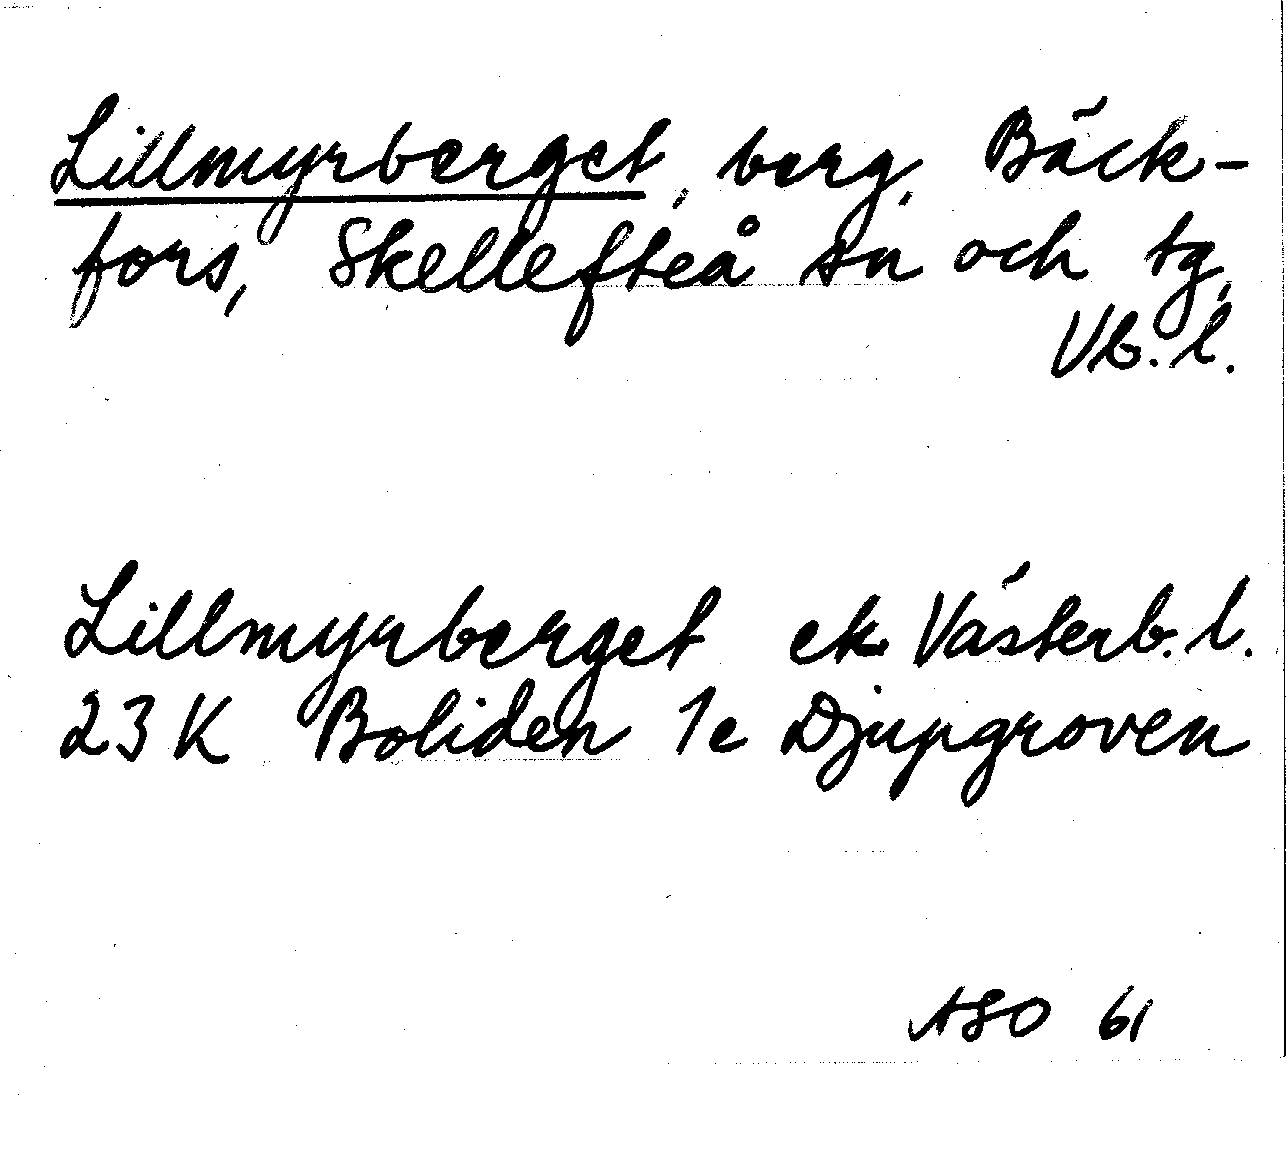 Lillmyrberget, berg, Bäck-
fors, Skellefteå sn och tg,
Vb. l.
Lillmyrberget ek. Västerb. l.
23 K Boliden 1e Djupgroven
ASO 61